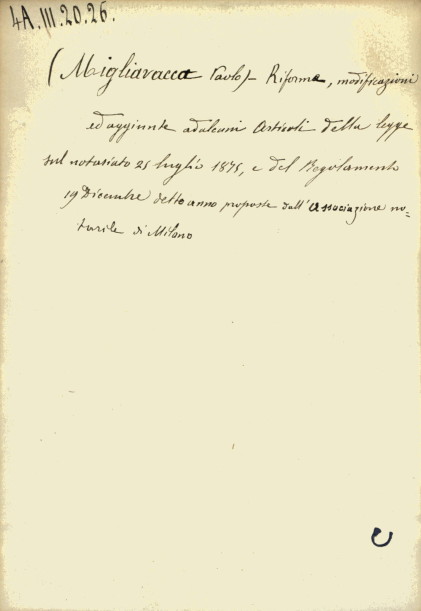 4A.III.20.26.
(Migliavacca Paolo) - Riforme, modificazioni
ed aggiunte ad alcuni Articoli della legge
sul notariato 25 luglio 1875, e del Regolamento
19 Dicembre detto anno proposte dall'Associazione no=
tarile di Milano